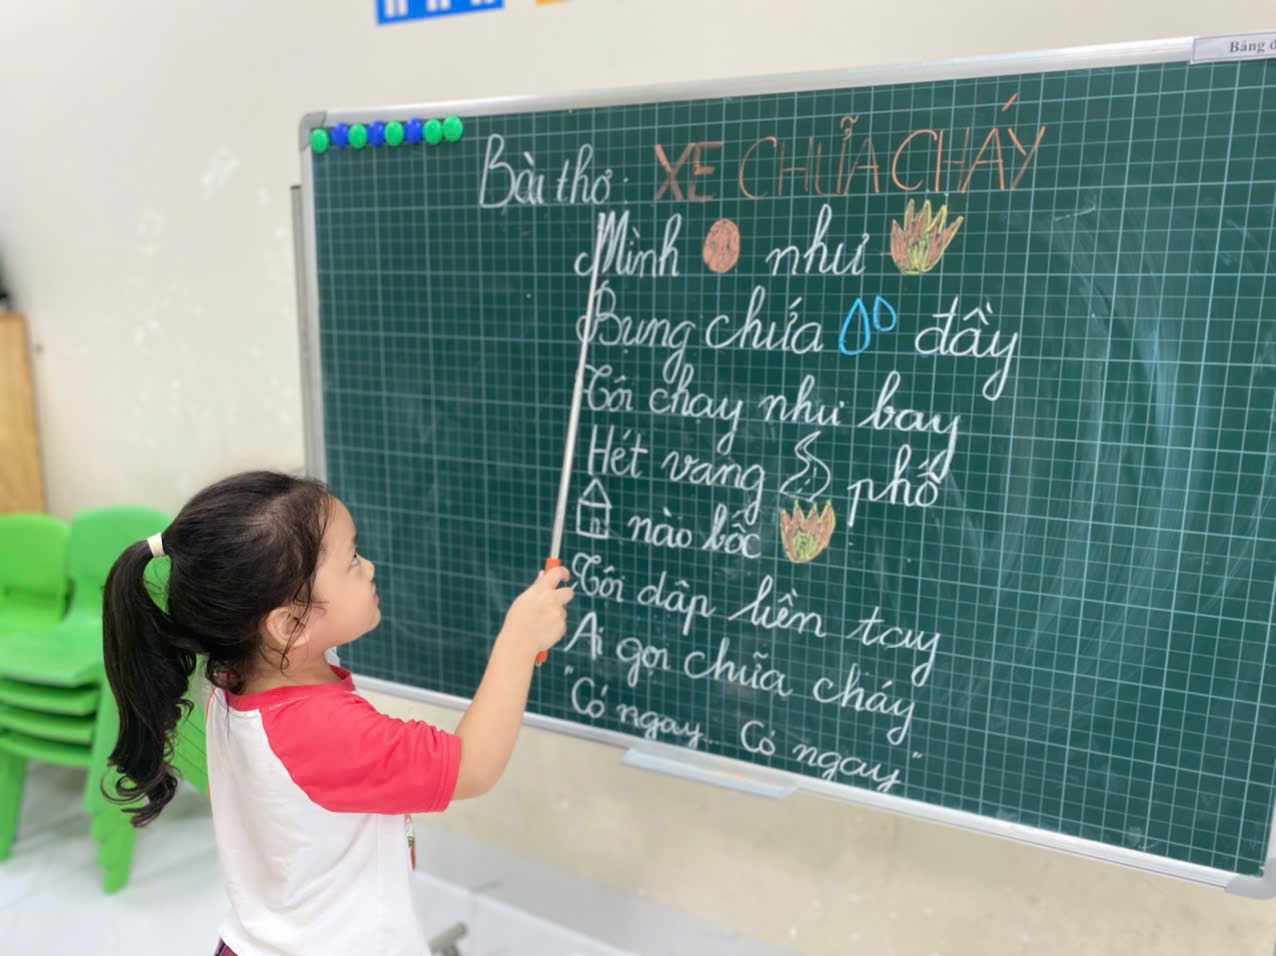 Bảng
Bài thơ: XE CHỮA CHÁY
Mình như
Bụng chứa đầy
Tôi chạy như bay
Hét vang phố
nào bốc
Tôi dập liền tay
Ai gọi chữa cháy
"Có ngay... Có ngay"